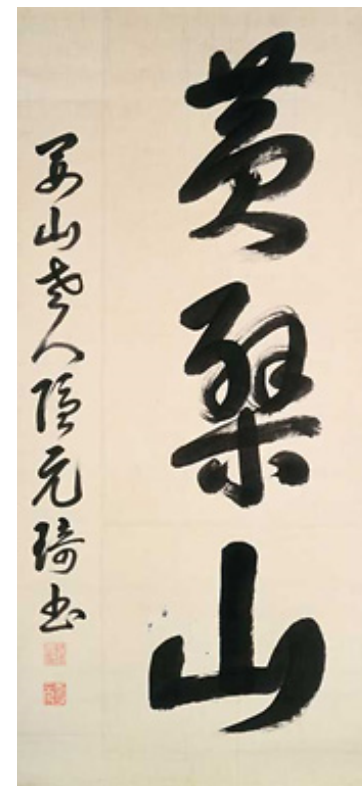 黄檗山
黄山老人隠元琦書